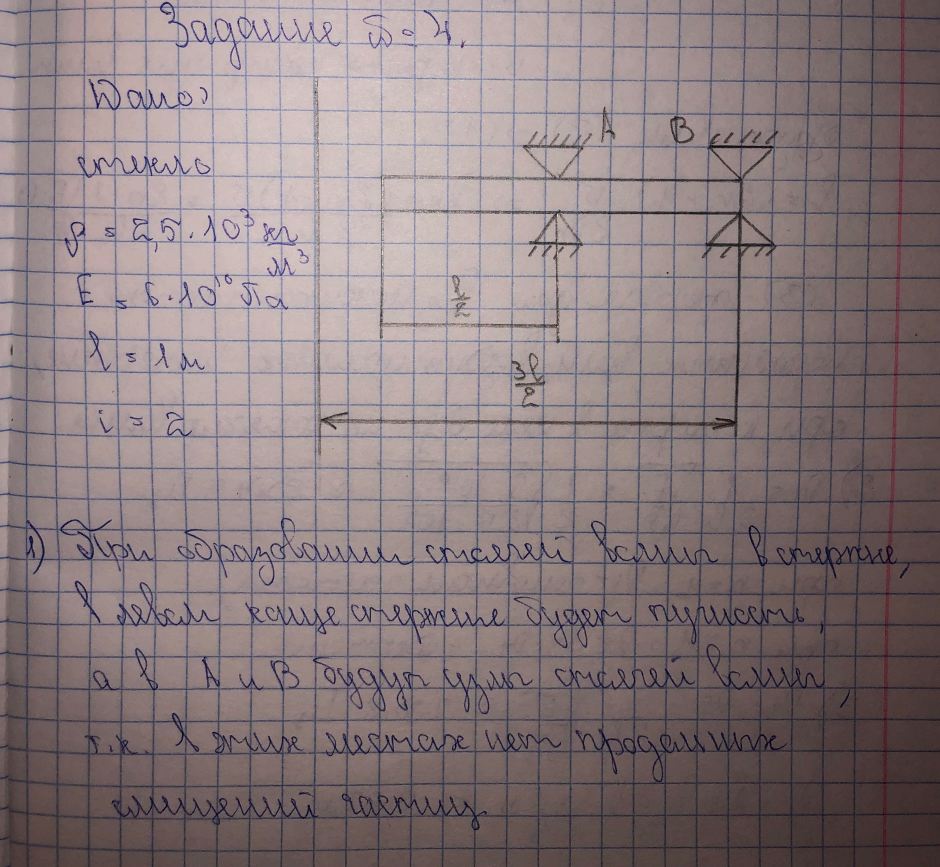 Задание
Дано:
стекло
ρ = 2,5·10³ кг/м³
E = 6·10¹⁰ Па
l = 1 м
i = 2
A B
l/2
3l/2
1) При образовании стоячей волны в стержне,
в левом конце стержне будет пучность,
а в A и B будут узлы стоячей волны,
т.к. в этих местах нет продольных
смещений частиц